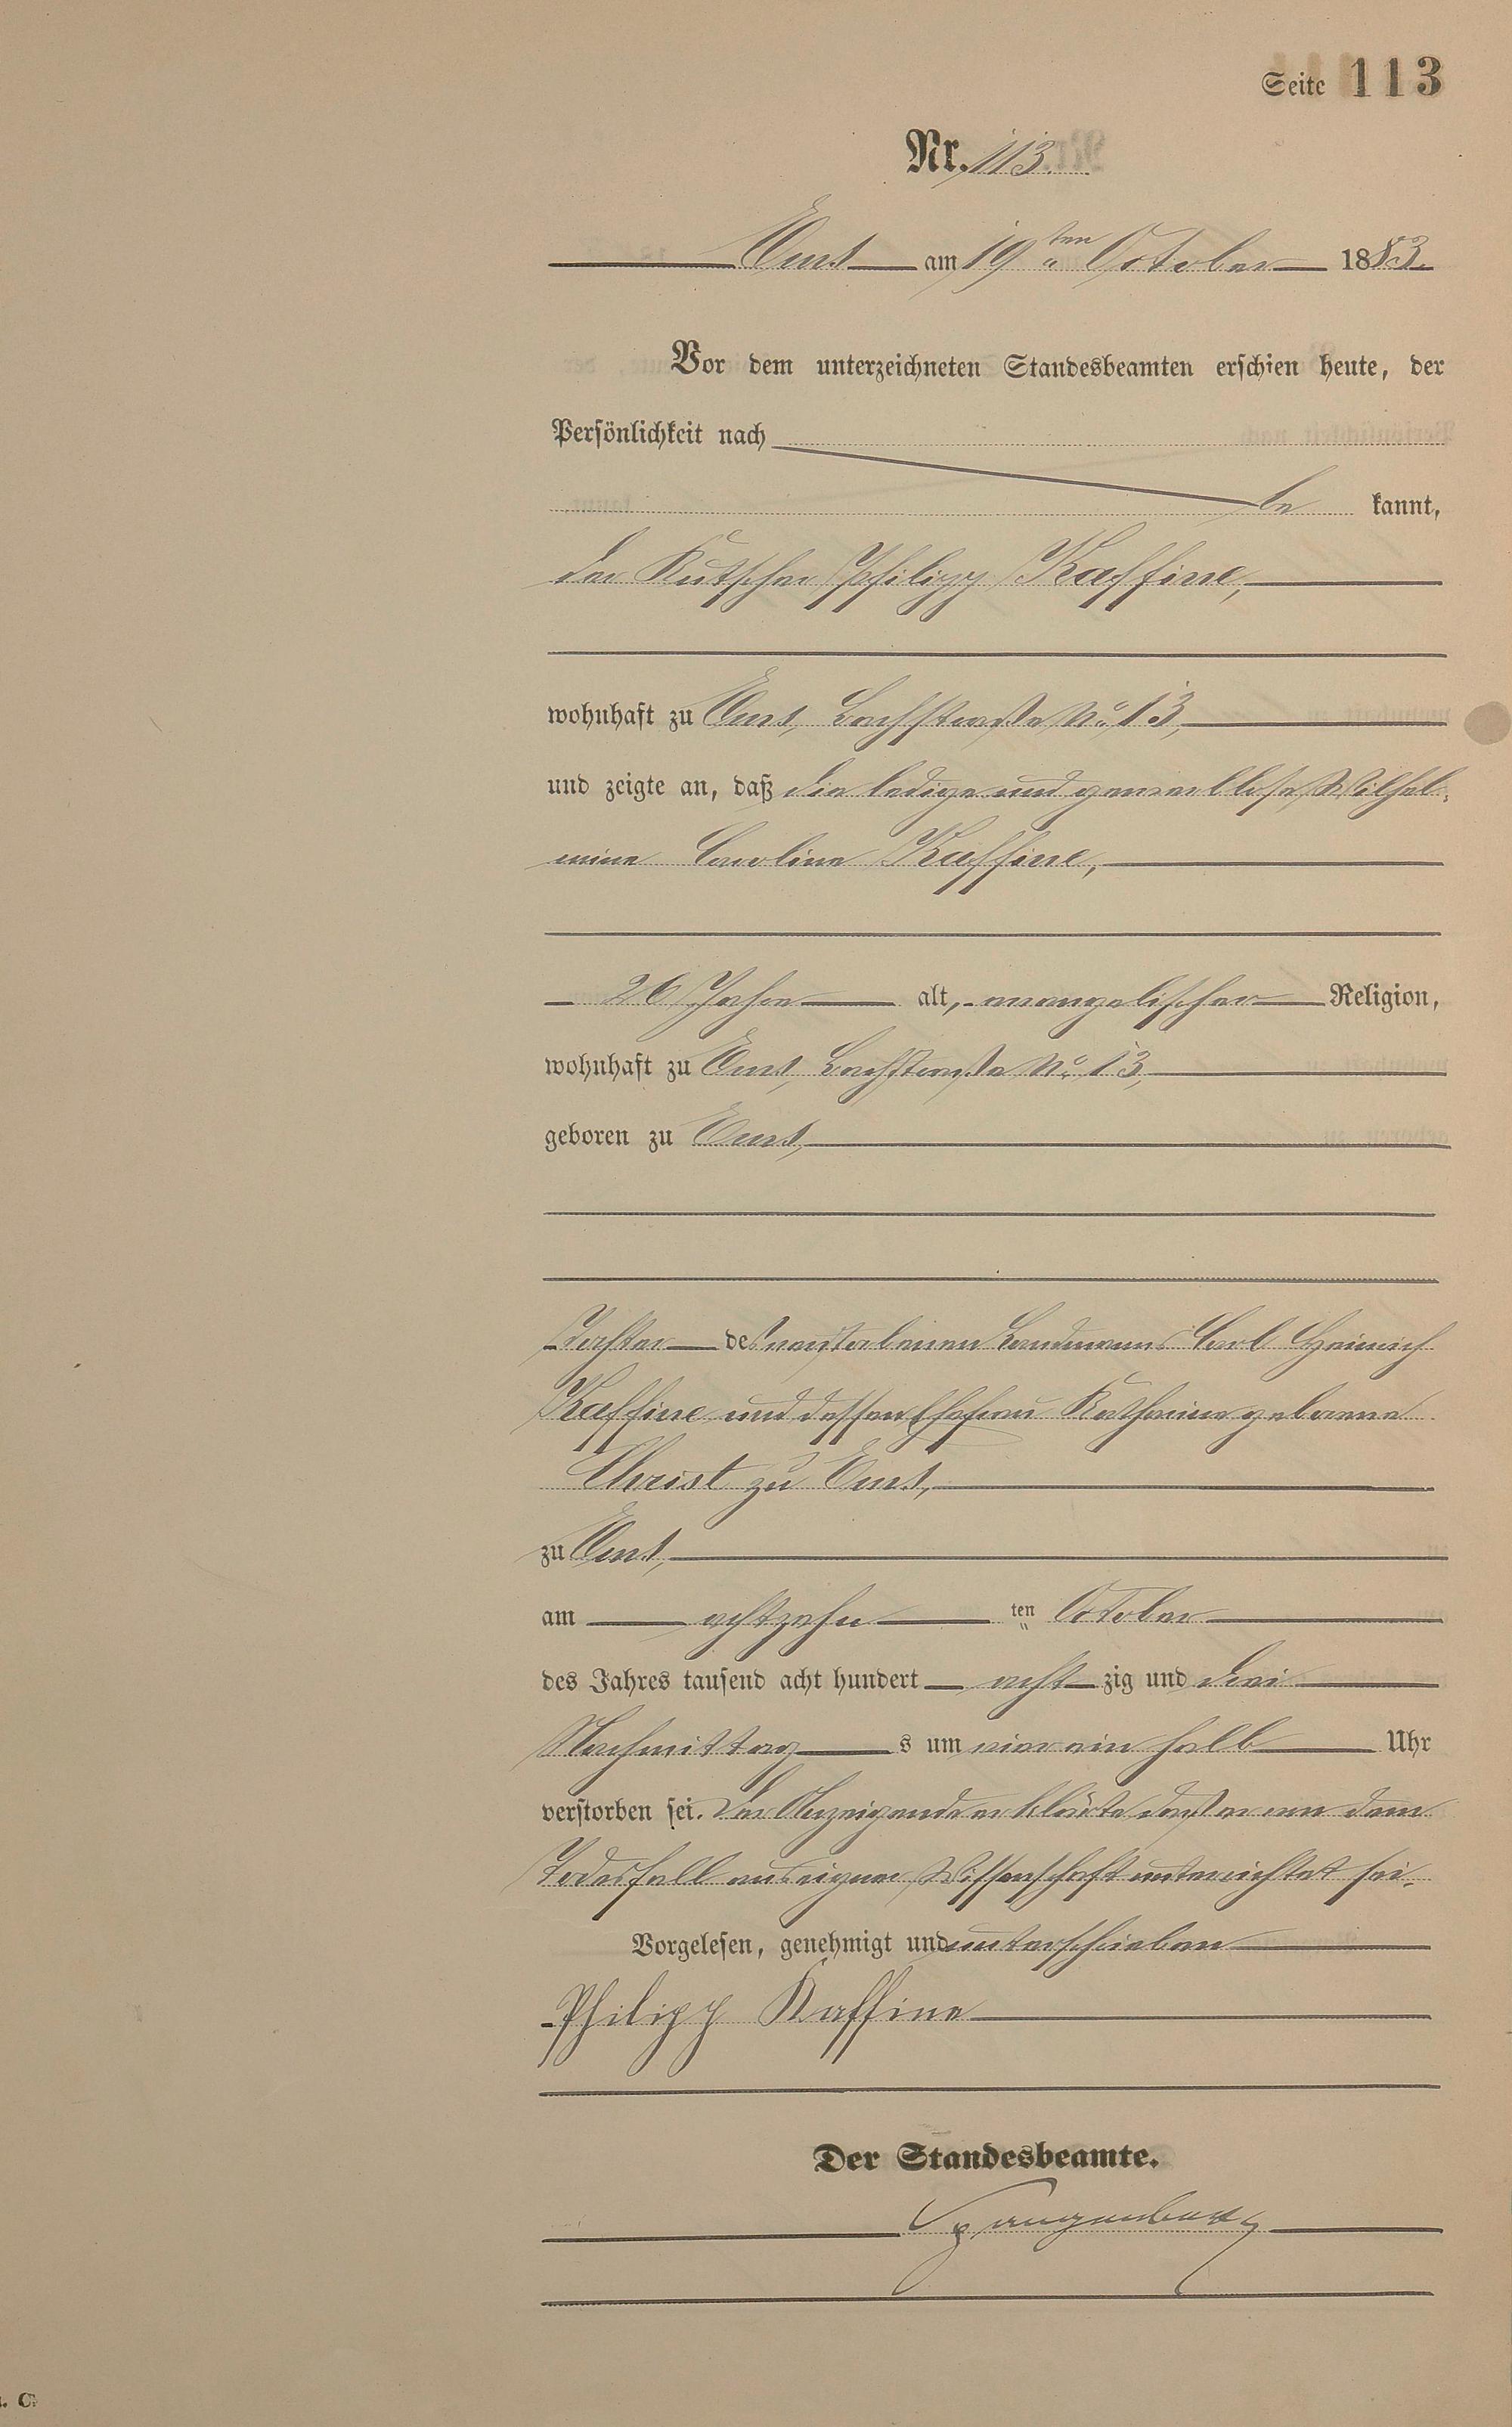 Seite 113
Nr. 113.
Ems am 19ten October 1883.
Vor dem unterzeichneten Standesbeamten erschien heute, der
Persönlichkeit nach
be kannt,
der Kutscher Philipp Kaffine,
wohnhaft zu Ems, Bachstraße No. 13,
und zeigte an, daß die ledige und gewerblose Wilhel-
mine Caroline Kaffine,
26 Jahre alt, evangelischer Religion,
wohnhaft zu Ems, Bachstraße No. 13,
geboren zu Ems,
Tochter des verstorbenen Landmanns Carl Heinrich
Kaffine und dessen Ehefrau Katharine geborene
Christ zu Ems,
zu Ems,
am achtzehn ten October
des Jahres tausend acht hundert acht zig und drei
Nachmittag s um vier ein halb Uhr
verstorben sei. Der Anzeigende erklärte daß er von dem
Todesfall aus eigner Wissenschaft unterrichtet sei.
Vorgelesen, genehmigt und unterschrieben
Philipp Kaffine
Der Standesbeamte.